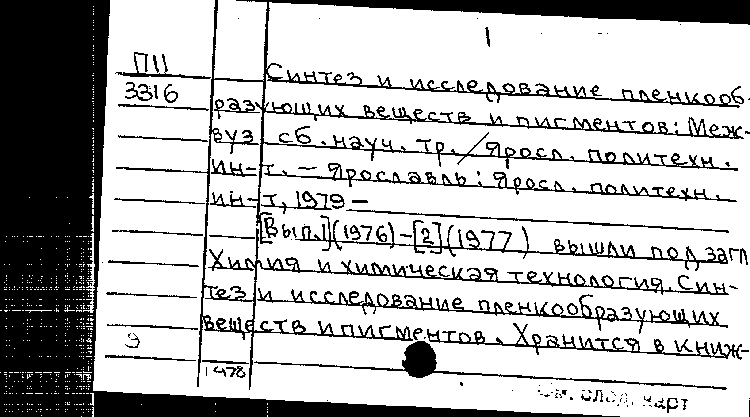 1
П11
3316
Синтез и исследование пленкооб-
разующих веществ и пигментов: Меж-
вуз. сб. науч. тр. / Яросл. политехн.
ин-т. – Ярославль: Яросл. политехн.
ин-т, 1979 –
[Вып.1](1976)–[2](1977) вышли под загл
Химия и химическая технология. Син-
тез и исследование пленкообразующих
веществ и пигментов. Хранится в книж-
9
1478
См. след. карт